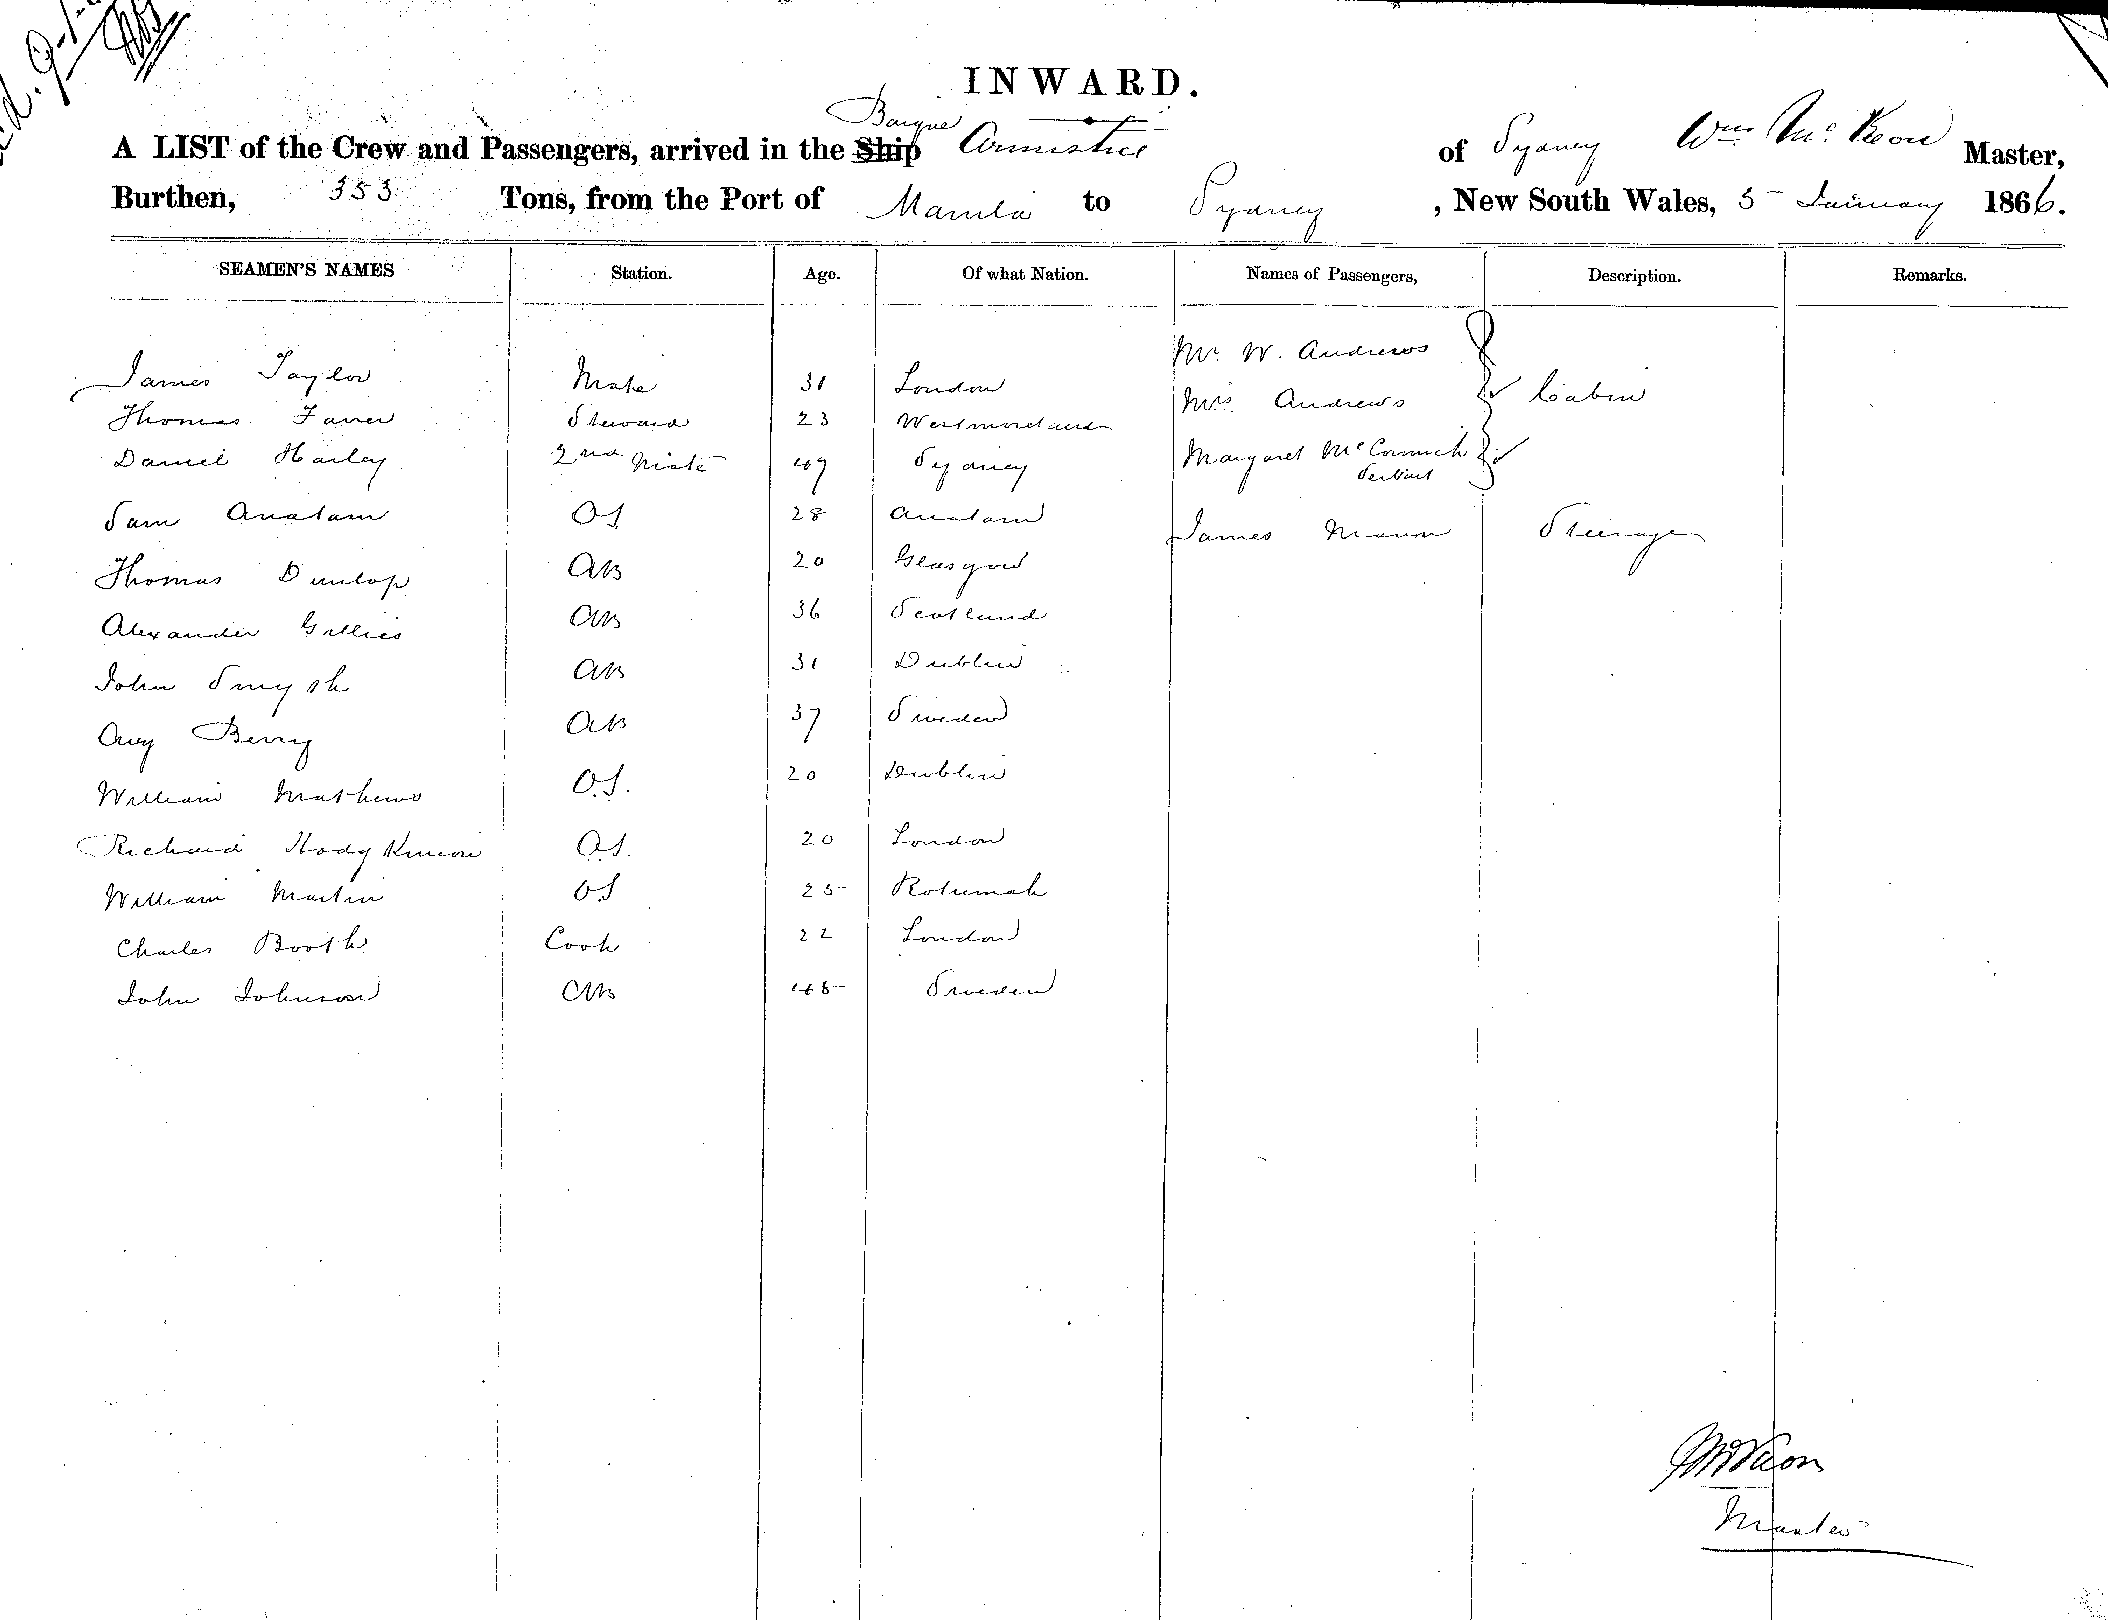 INWARD.
Barque
A LIST of the Crew and Passengers, arrived in the Ship Armistice of Sydney Wm McKeon Master,
Burthen, 353 Tons, from the Port of Manila to Sydney , New South Wales, 5 January 1866.
SEAMEN'S NAMES Station. Age. Of what Nation. Names of Passengers, Description. Remarks.
Mr W. Andrews
James Taylor Mate 31 London
Mrs Andrews Cabin
Thomas Steward 23 Westmoreland
Daniel Harley 2nd Mate 49 Sydney Margaret McCormick
Servant
Sam Anatam OS 28 Anatam
James Steerage
Thomas Dunlop AB 20 Glasgow
Alexander Gillies AB 36 Scotland
John Smyth AB 31 Dublin
Aug Berry AB 37 Sweden
William Mathews O.S. 20 Dublin
Richard Hodgkinson OS. 20 London
William Martin OS 25 Rotumah
Charles Booth Cook 22 London
John Johnson AB 45 Sweden
McKeon
Master